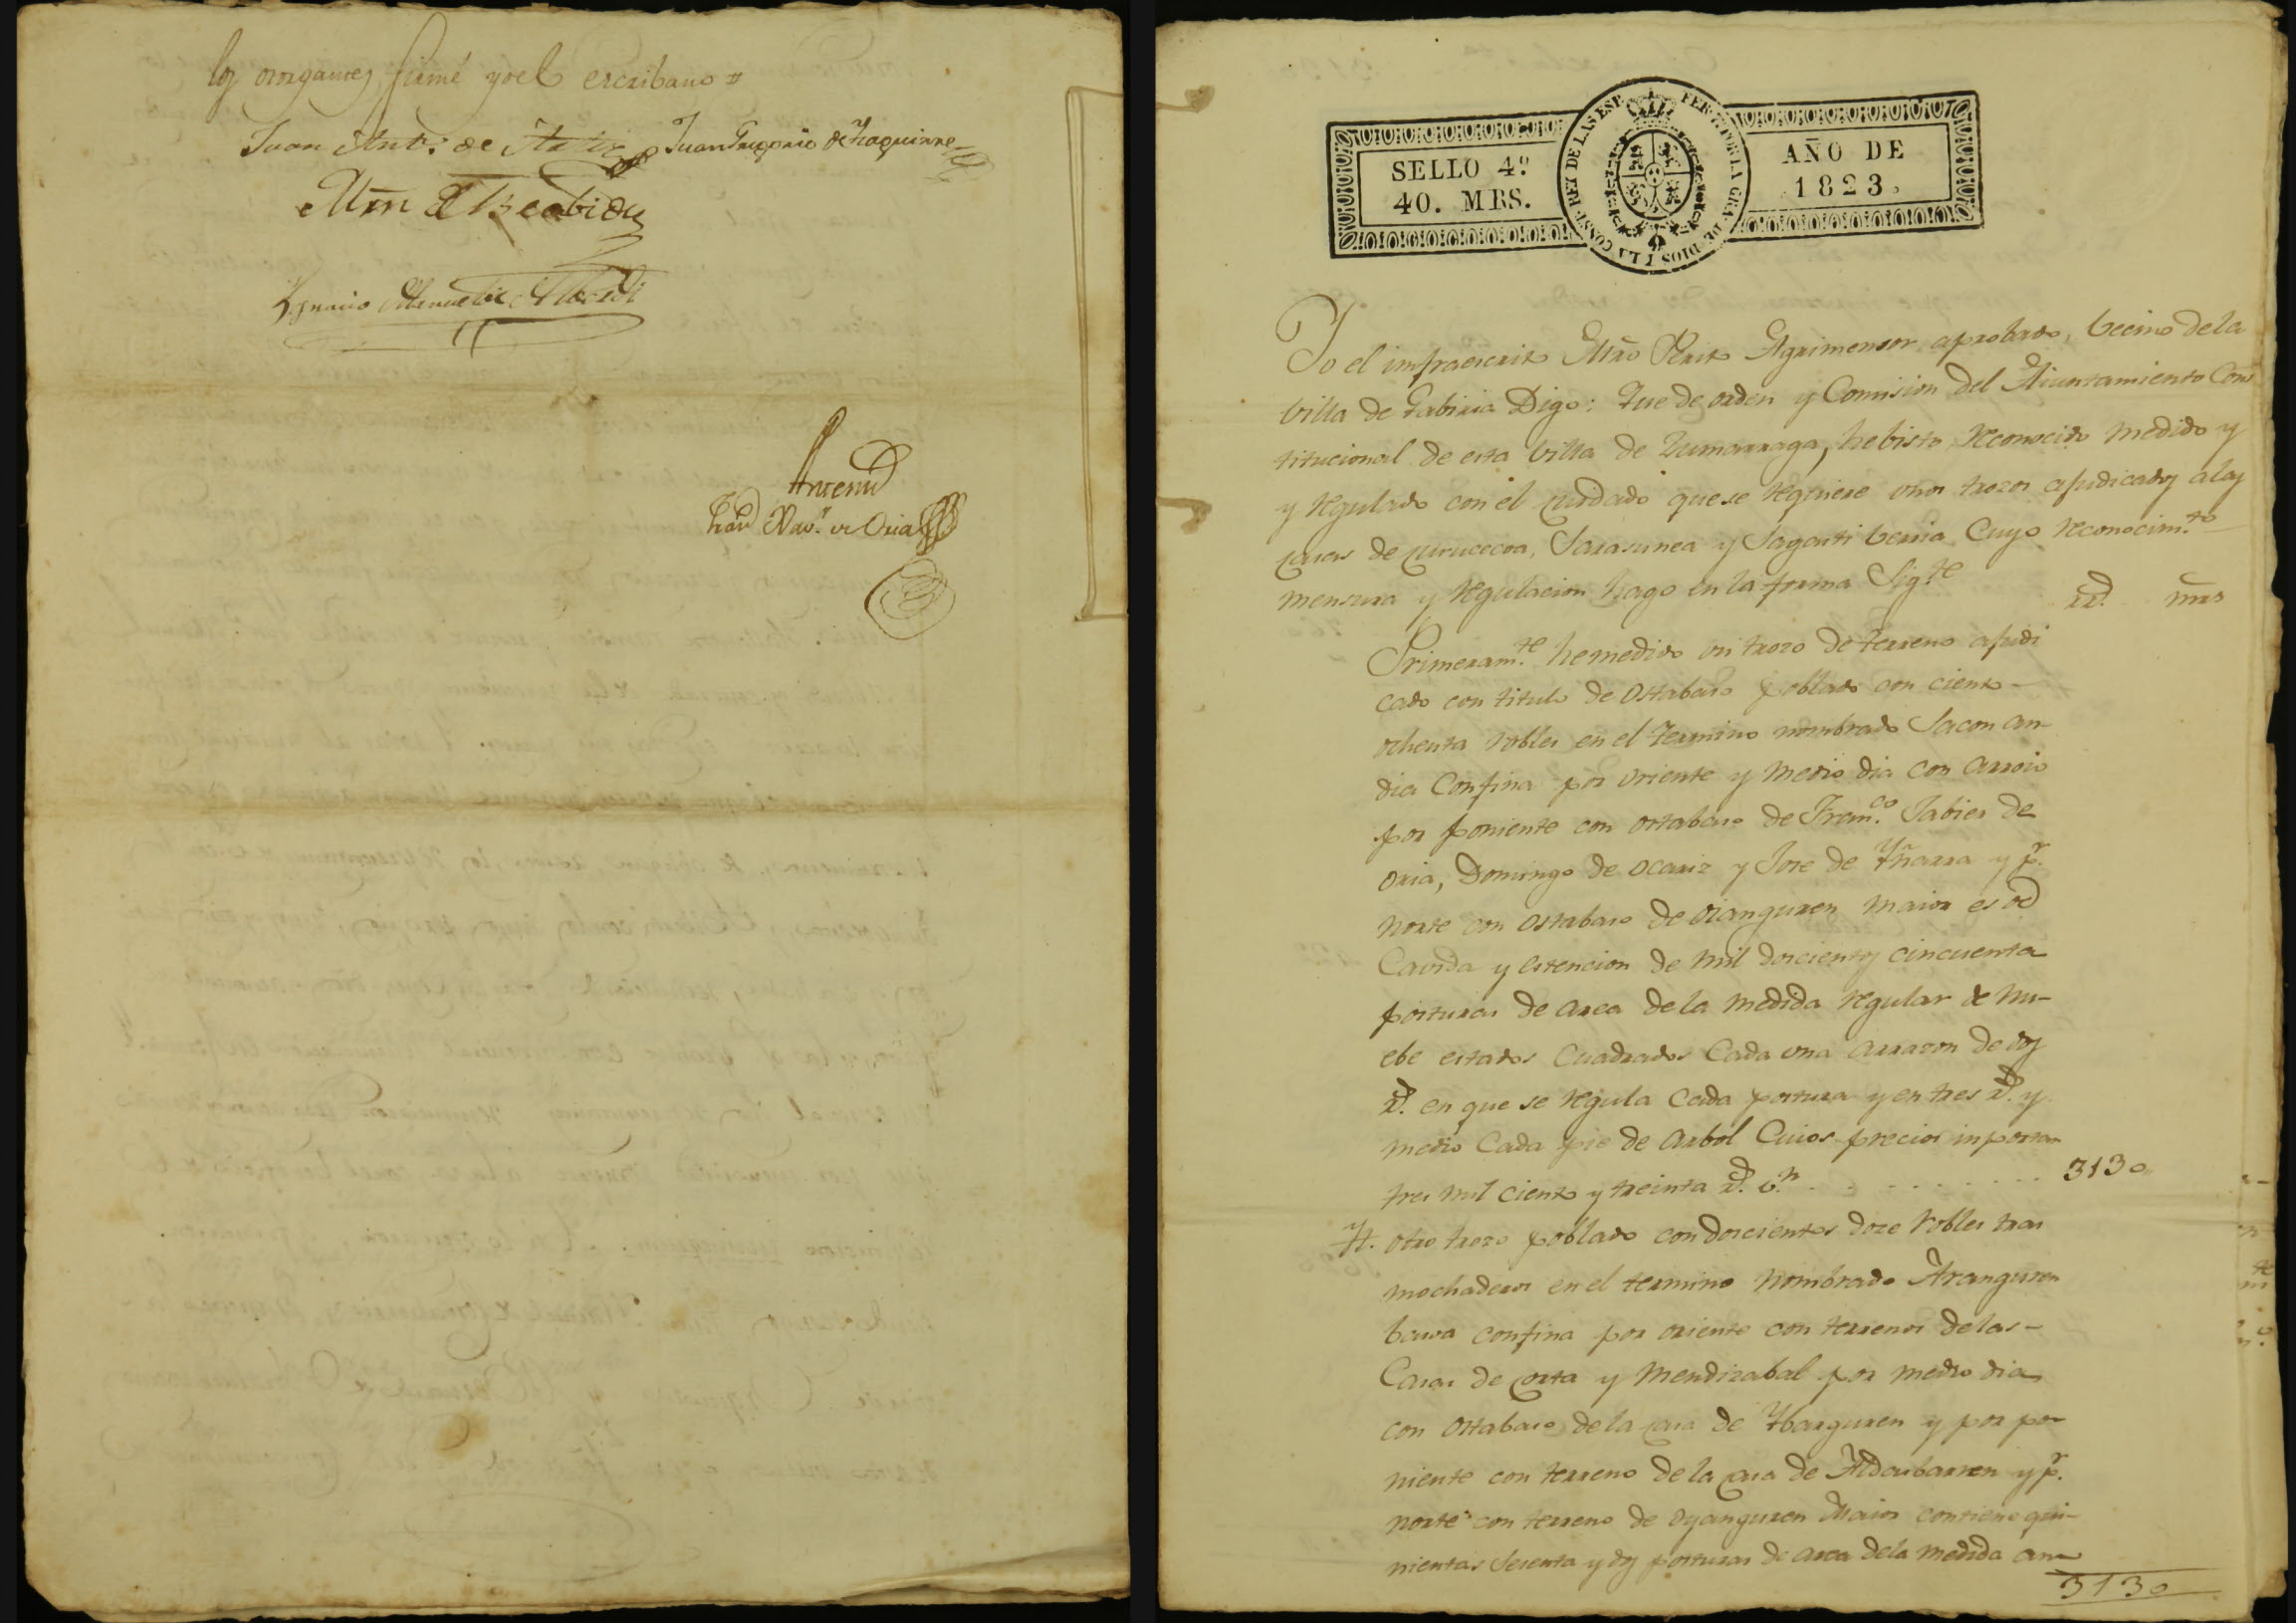 los otorgantes firmé yo el escribano =
Juan Ant.º de Juan Gregorio de Yzaguirre
Mrn de Beobide
Ygnacio Manuel de Alberdi
Antemi
Fran Xav.r de Oria
SELLO 4º
40. MRS.
FERN. 7º POR LA GRA. DE DIOS Y LA CONST. REY DE LAS ESP.
AÑO DE
1823.
Yo el infraescrito Mro Perito Agrimensor aprobado, becino de la
billa de Gabiria Digo: Que de orden y Comision del Aiuntamiento Cons
titucional de esta billa de Zumarraga, he bisto reconocido medido y
y regulado con el cuidado que se requiere unos trozos ajudicados a las
casas de Sarasunea y Sagasti berria Cuyo reconocim.to
mensura y regulacion hago en la forma Sig.te
rs. mrs
Primeram.te he medido un trozo de terreno ajudi
cado con titulo de Ostabaso poblado con ciento -
ochenta robles en el termino nombrado Sacon an-
dia Confina por oriente y medio dia con arroio
por poniente con ostabaso de Fran.co Jabier de
Oria, Domingo de Ocariz y Jose de Yñarra y p.r
norte con ostabaso de Oianguren maior es de
Cavida y estencion de mil doscientos cincuenta
posturas de area de la medida regular de nu-
ebe estados Cuadrados Cada una arrazon de dos
rs. en que se regula Cada postura y en tres rs. y
medio Cada pie de arbol Cuios precios inportan
tres mil ciento y treinta rs. v.n . . . . . . . . 3130
Yt. otro trozo poblado con doscientos doze robles tras
mochaderos en el termino nombrado Aranguren
basoa confina por oriente con terrenos de las -
Casas de Corta y Mendizabal por medio dia
con ostabaso de la casa de Ybarguren y por po-
niente con terreno de la casa de Aldasbarren y p.r
norte con terreno de Oyanguren Maior contiene qui-
nientas sesenta y dos posturas de area de la medida an-
3130